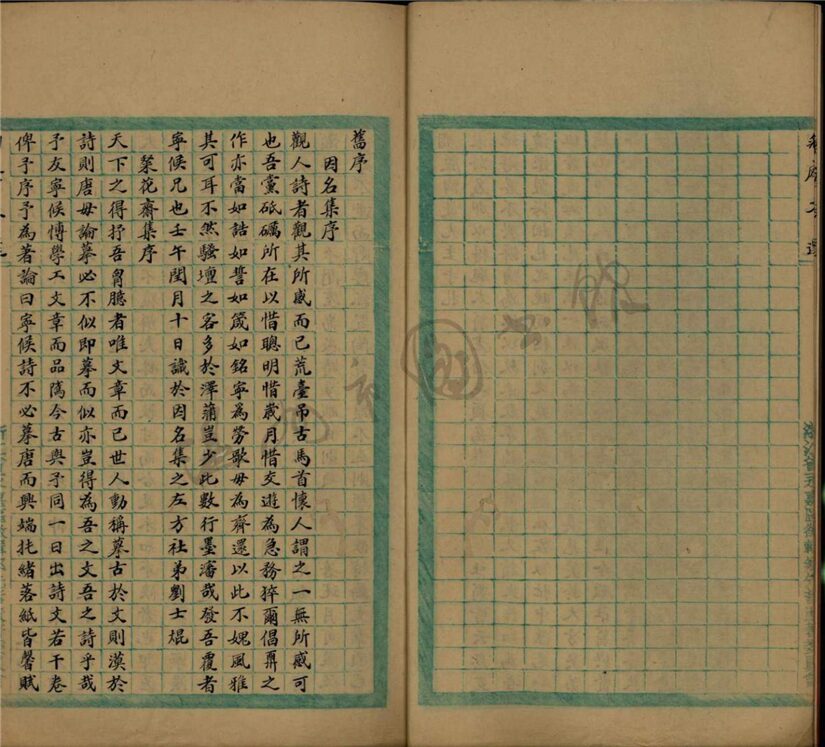 舊序
因名集序
觀人詩者觀其所感而已荒臺吊古馬首懷人謂之一無所感可
也吾黨砥礪所在以惜聰明惜歲月惜交遊為急務猝爾倡爾之
作亦當如誥如誓如箴如銘寧為勞歌毋為齊還以此不媿風雅
其可耳不然騷壇之客多於澤蒲豈少此數行墨瀋哉發吾覆者
寧候兄也壬午閏月十日識於因名集之左方社弟劉士焜
槳花齋集序
天下之得抒吾胷臆者唯文章而已世人動稱摹古於文則漢於
詩則唐毋論摹必不似即摹而似亦豈得為吾之文吾之詩乎哉
予友寧候博學工文章而品隲今古與予同一日出詩文若干卷
俾予序予為著論曰寧候詩不必摹唐而興端托緒落紙皆馨賦